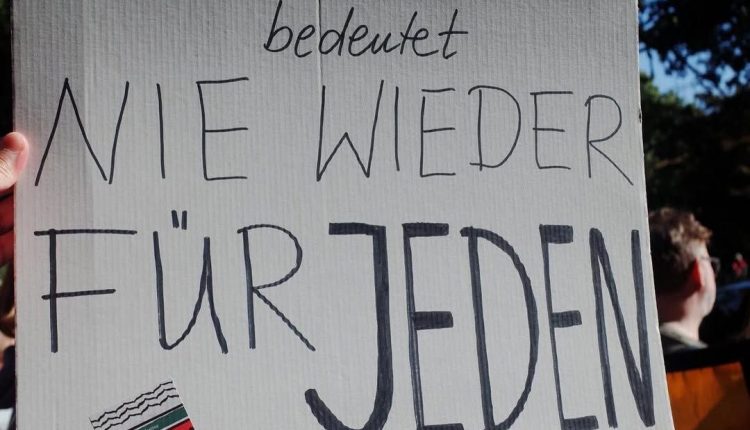 bedeutet
NIE WIEDER
FÜR JEDEN